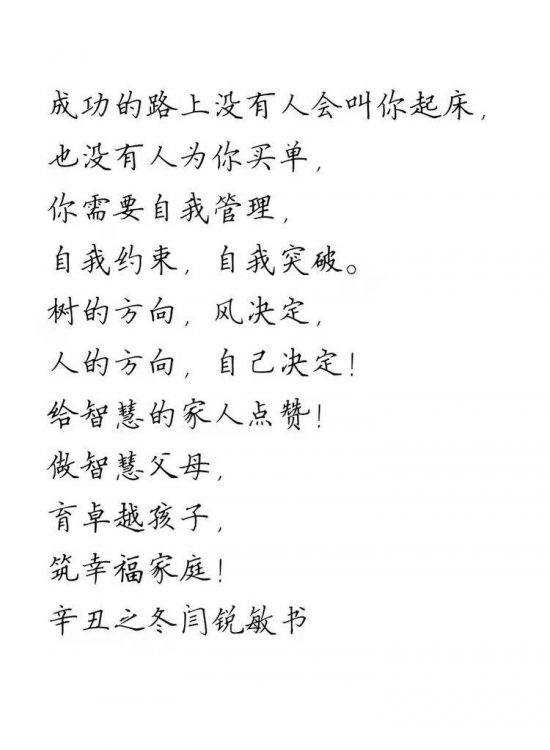 成功的路上没有人会叫你起床，
也没有人为你买单，
你需要自我管理，
自我约束，自我突破。
树的方向，风决定，
人的方向，自己决定！
给智慧的家人点赞！
做智慧父母，
育卓越孩子，
筑幸福家庭！
辛丑之冬闫锐敏书